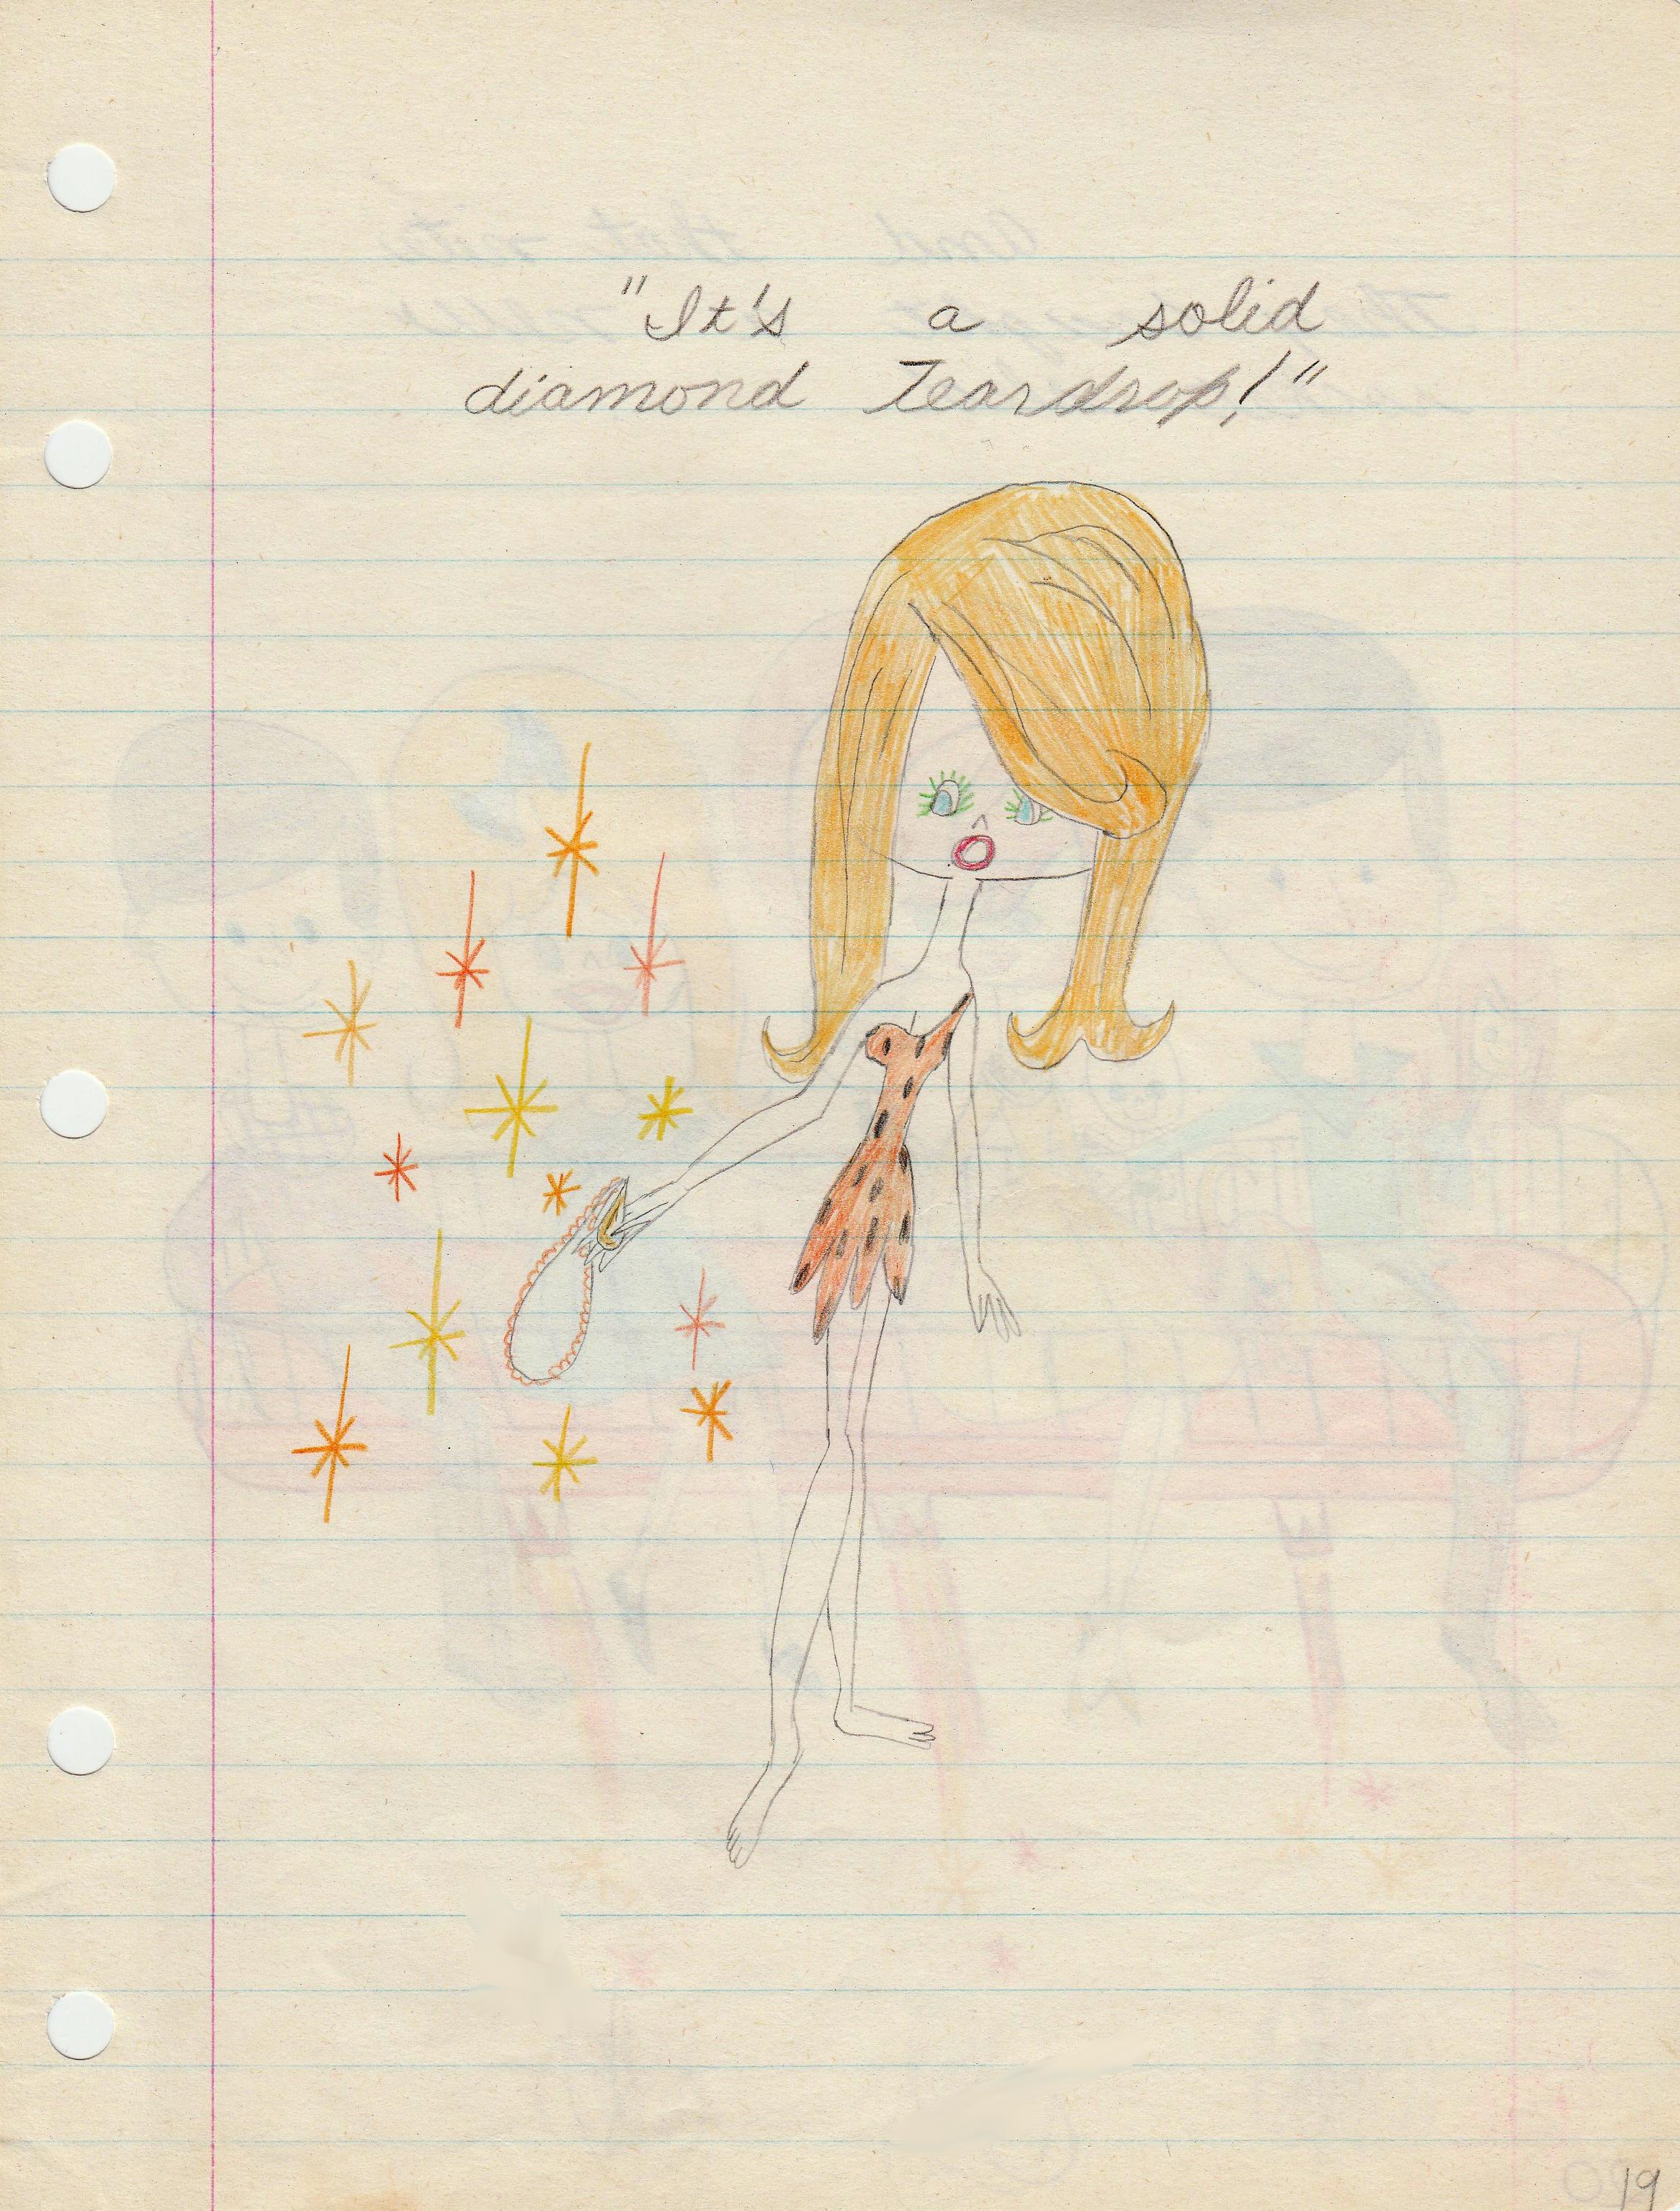 "It's a solid
diamond Teardrop!"
19